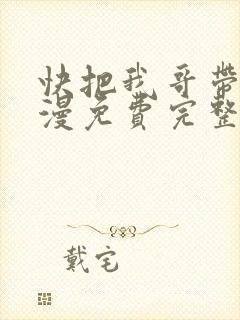 快把我哥带
漫免費完整
戴宅